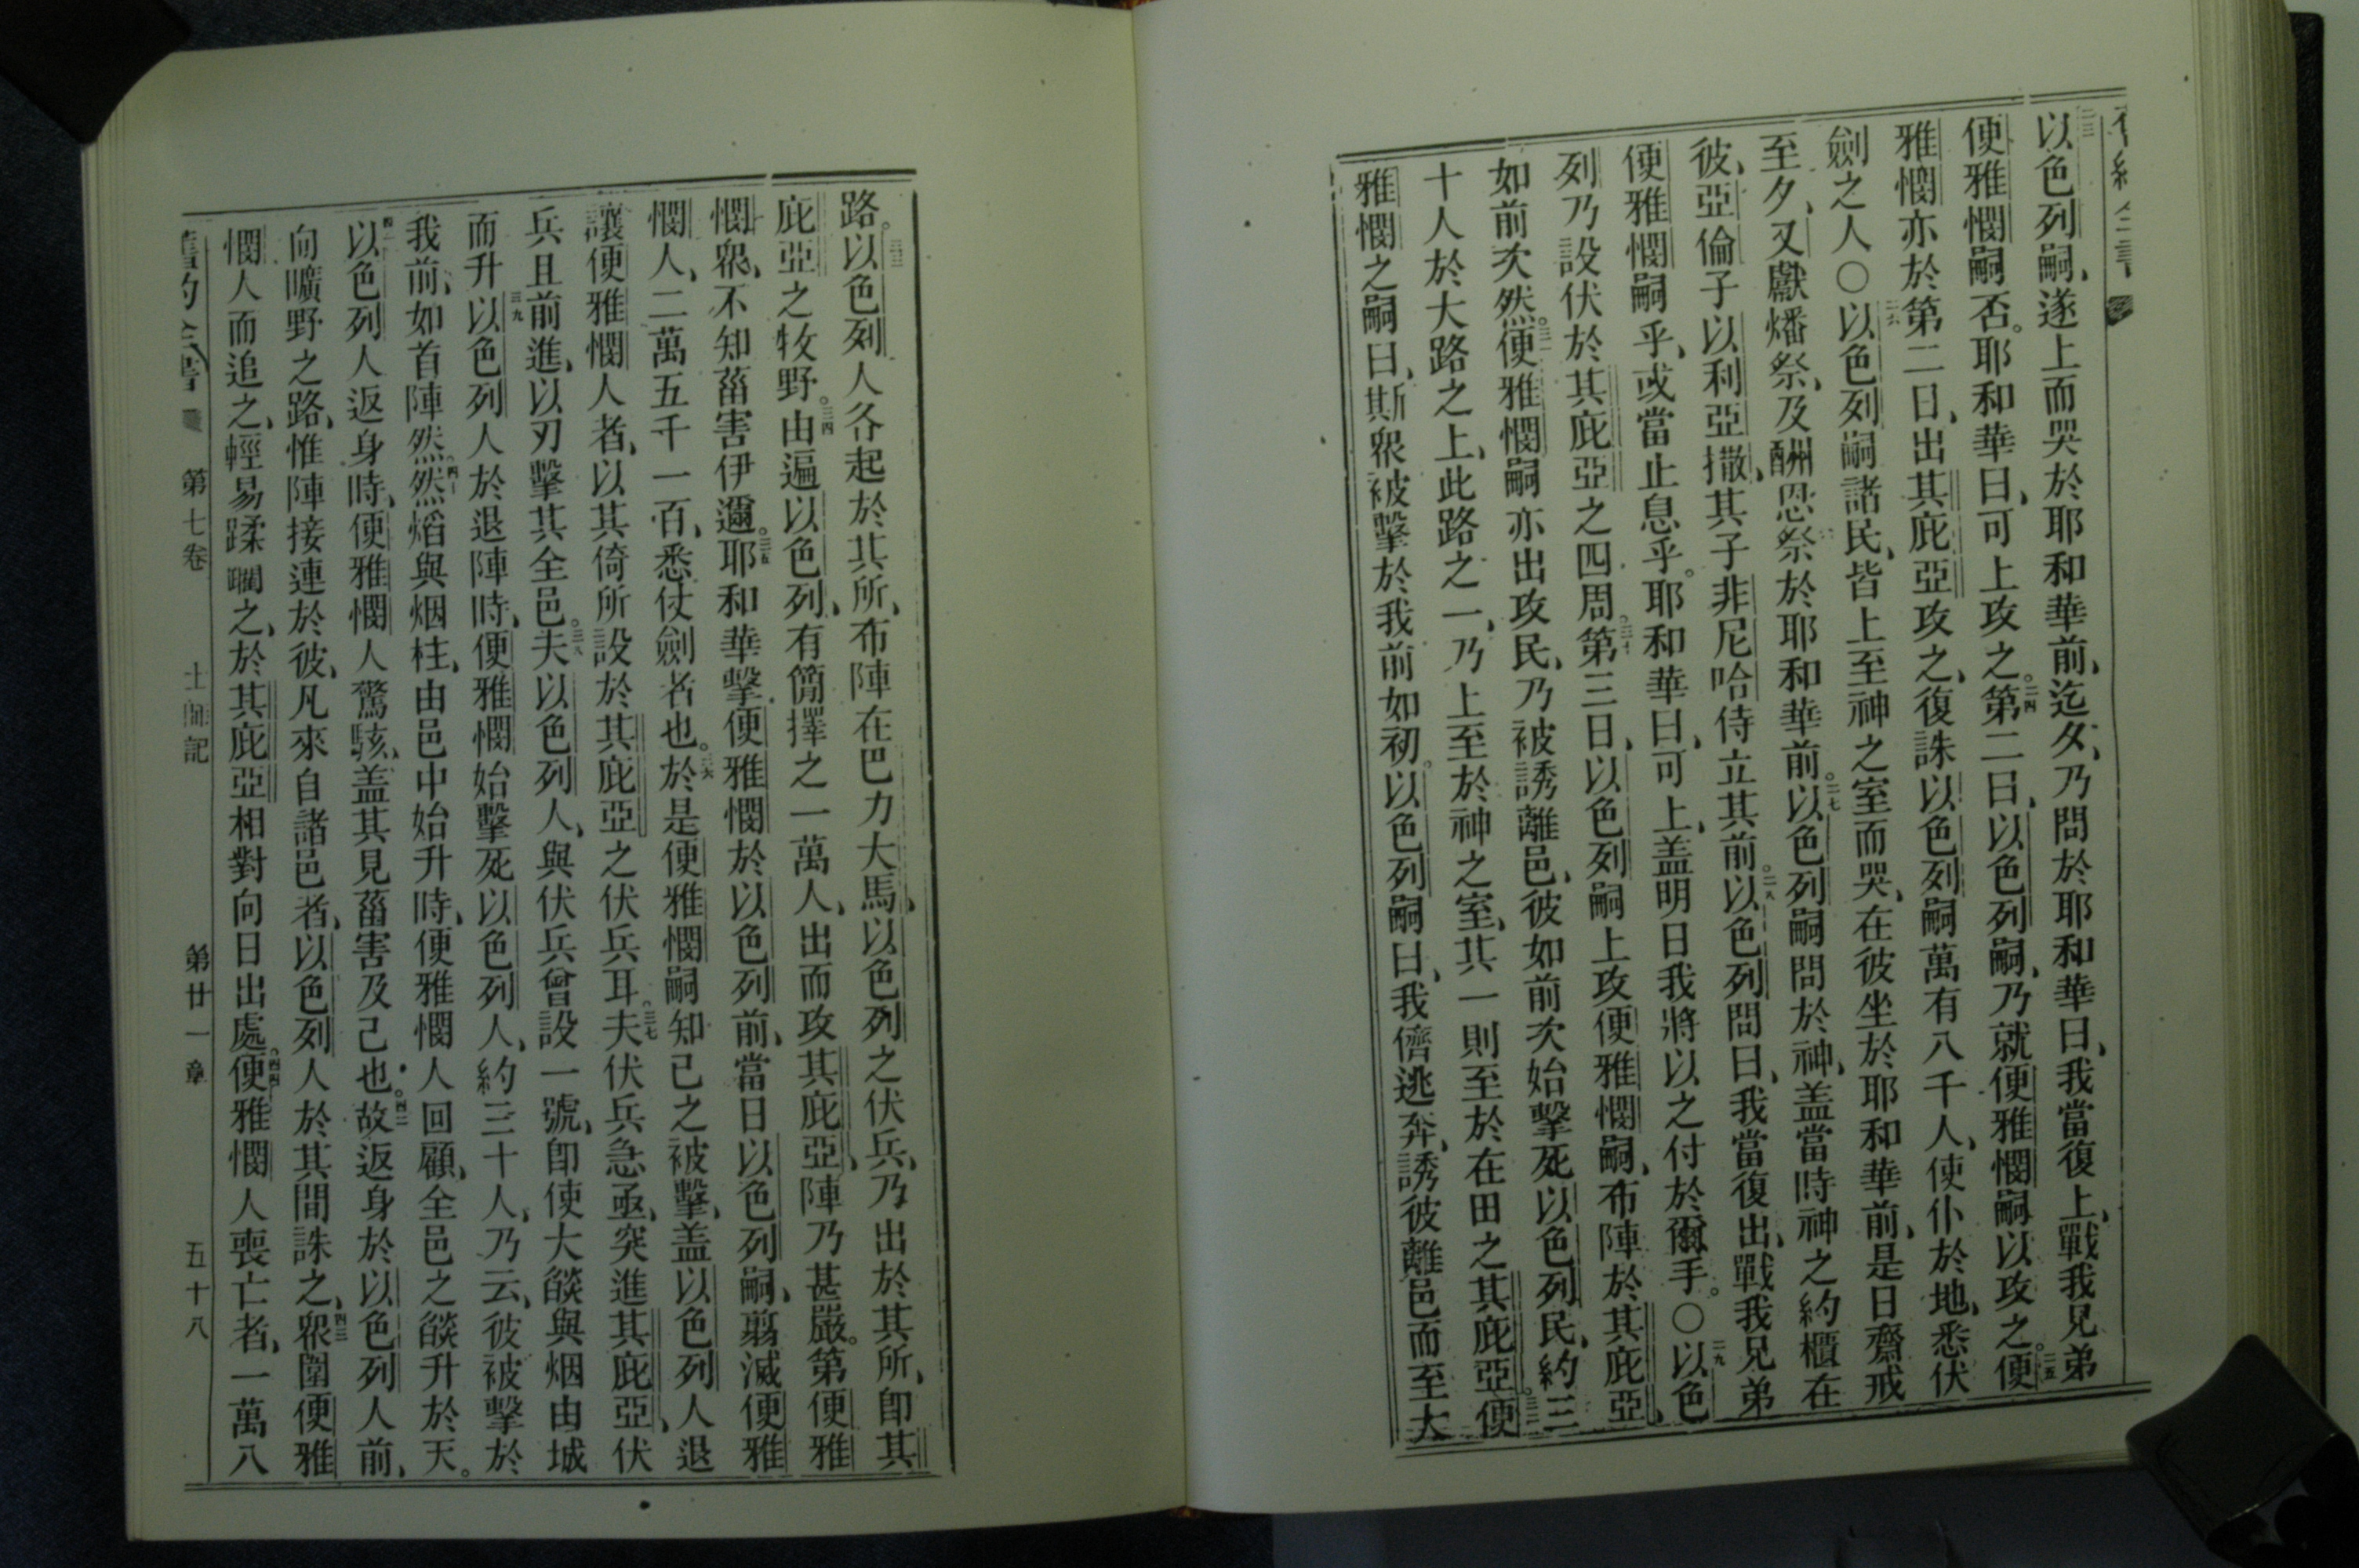 以色列嗣、遂上而哭於耶和華前、迄夕、乃問於耶和華曰、我當復上、戰我兄弟
便雅憫嗣否。耶和華曰、可上攻之。二四第二日、以色列嗣、乃就便雅憫嗣以攻之。二五便
雅憫亦於第二日、出其庇亞攻之、復誅以色列嗣萬有八千人、使仆於地、悉伏
劍之人○二六以色列嗣諸民、皆上至神之室而哭、在彼坐於耶和華前、是日齋戒
至夕、又獻燔祭、及酬恩祭於耶和華前。二七以色列嗣問於神、盖當時神之約櫃在
彼、亞倫子以利亞撒、其子非尼哈侍立其前。二八以色列問曰、我當復出、戰我兄弟
便雅憫嗣乎、或當止息乎。耶和華曰、可上、盖明日我將以之付於爾手。○二九以色
列乃設伏於其庇亞之四周。三十第三日、以色列嗣上攻便雅憫嗣、布陣於其庇亞、
如前次然。三一便雅憫嗣亦出攻民、乃被誘離邑、彼如前次始擊死以色列民、約三
十人於大路之上、此路之一、乃上至於神之室、其一則至於在田之其庇亞。三二便
雅憫之嗣曰、斯眾被擊於我前如初。以色列嗣曰、我儕逃奔、誘彼離邑而至大
路。三三以色列人各起於其所、布陣在巴力大馬、以色列之伏兵、乃出於其所、即其
庇亞之牧野。三四由遍以色列、有簡擇之一萬人、出而攻其庇亞、陣乃甚嚴。第便雅
憫眾、不知菑害伊邇。三五耶和華擊便雅憫於以色列前、當日以色列嗣、翦滅便雅
憫人、二萬五千一百、悉仗劍者也。三六於是便雅憫嗣知己之被擊、盖以色列人退
讓便雅憫人者、以其倚所設於其庇亞之伏兵耳。三七夫伏兵急亟、突進其庇亞、伏
兵且前進、以刃擊其全邑。三八夫以色列人、與伏兵曾設一號、即使大燄與烟由城
而升。三九以色列人於退陣時、便雅憫始擊死以色列人、約三十人、乃云、彼被擊於
我前、如首陣然。四十然熖與烟柱、由邑中始升時、便雅憫人回顧、全邑之燄升於天。
四一以色列人返身時、便雅憫人驚駭、盖其見菑害及己也。四二故返身於以色列人前、
向曠野之路、惟陣接連於彼、凡來自諸邑者、以色列人於其間誅之、四三眾圍便雅
憫人而追之、輕易蹂躪之、於其庇亞相對向日出處。四四便雅憫人喪亡者、一萬八
舊約全書 第七卷 士師記 第廿一章 五十八